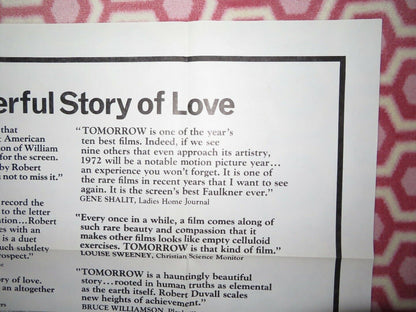 erful Story of Love
that
American
on of William
for the screen.
by Robert
not to miss it."
record the
to the letter
ation...Robert
es with an
is a duet
ch subtlety
rospect."
ry of love.
an altogether
ers
"TOMORROW is one of the year's
ten best films. Indeed, if we see
nine others that even approach its artistry,
1972 will be a notable motion picture year...
an experience you won't forget. It is one of
the rare films in recent years that I want to see
again. It is the screen's best Faulkner ever."
GENE SHALIT, Ladies Home Journal
"Every once in a while, a film comes along of
such rare beauty and compassion that it
makes other films looks like empty celluloid
exercises. TOMORROW is that kind of film."
LOUISE SWEENEY, Christian Science Monitor
"TOMORROW is a hauntingly beautiful
story...rooted in human truths as elemental
as the earth itself. Robert Duvall scales
new heights of achievement."
BRUCE WILLIAMSON,